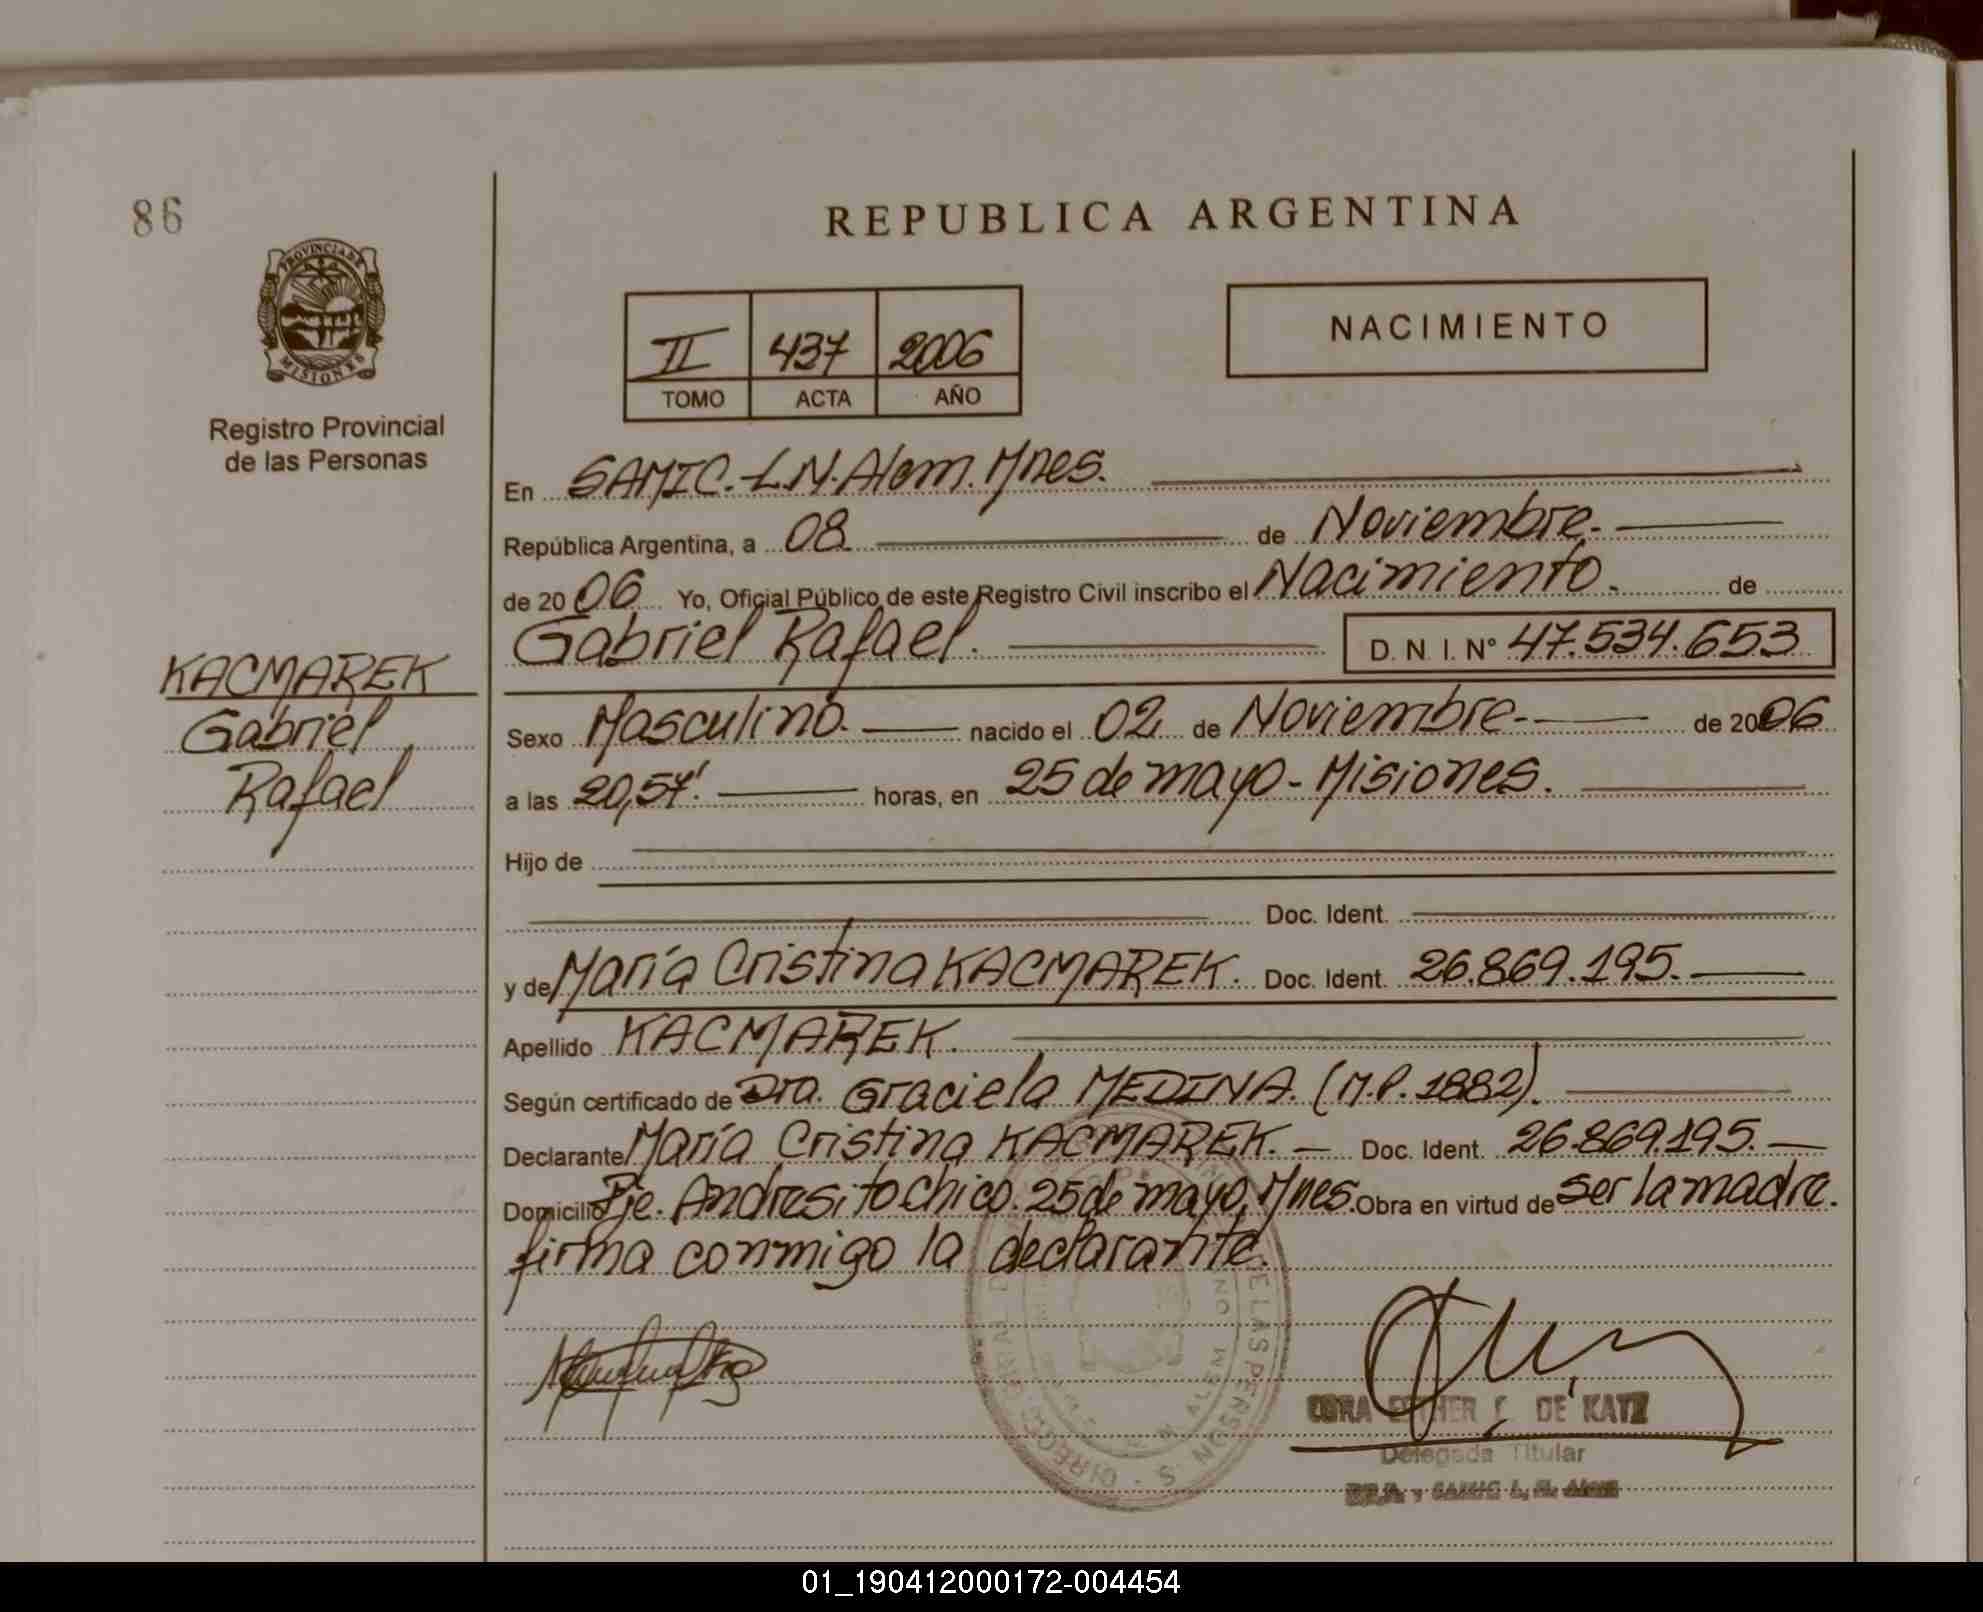 86
PROVINCIA DE
MISIONES
Registro Provincial
de las Personas
REPUBLICA ARGENTINA
II 437 2006
TOMO ACTA AÑO
NACIMIENTO
En SAMIC.-L.N.Alem.Mnes.
República Argentina, a 08 de Noviembre.
de 2006 Yo, Oficial Público de este Registro Civil inscribo el Nacimiento. de
Gabriel Rafael. D. N. I. N° 47.534.653
KACMAREK
Gabriel
Rafael
Sexo Masculino. nacido el 02 de Noviembre.- de 2006
a las 20,57'. horas, en 25 de mayo - Misiones.
Hijo de
Doc. Ident.
y de María Cristina KACMAREK. Doc. Ident. 26.869.195.
Apellido KACMAREK.
Según certificado de Dra. Graciela MEDINA. (M.P. 1882).
Declarante María Cristina KACMAREK. — Doc. Ident. 26.869.195. —
Domicilio Pje. Andresito Chico. 25 de mayo, Mnes. Obra en virtud de ser la madre.
firma conmigo la declarante.
DE KATZ
Delegada Titular
01_190412000172-004454